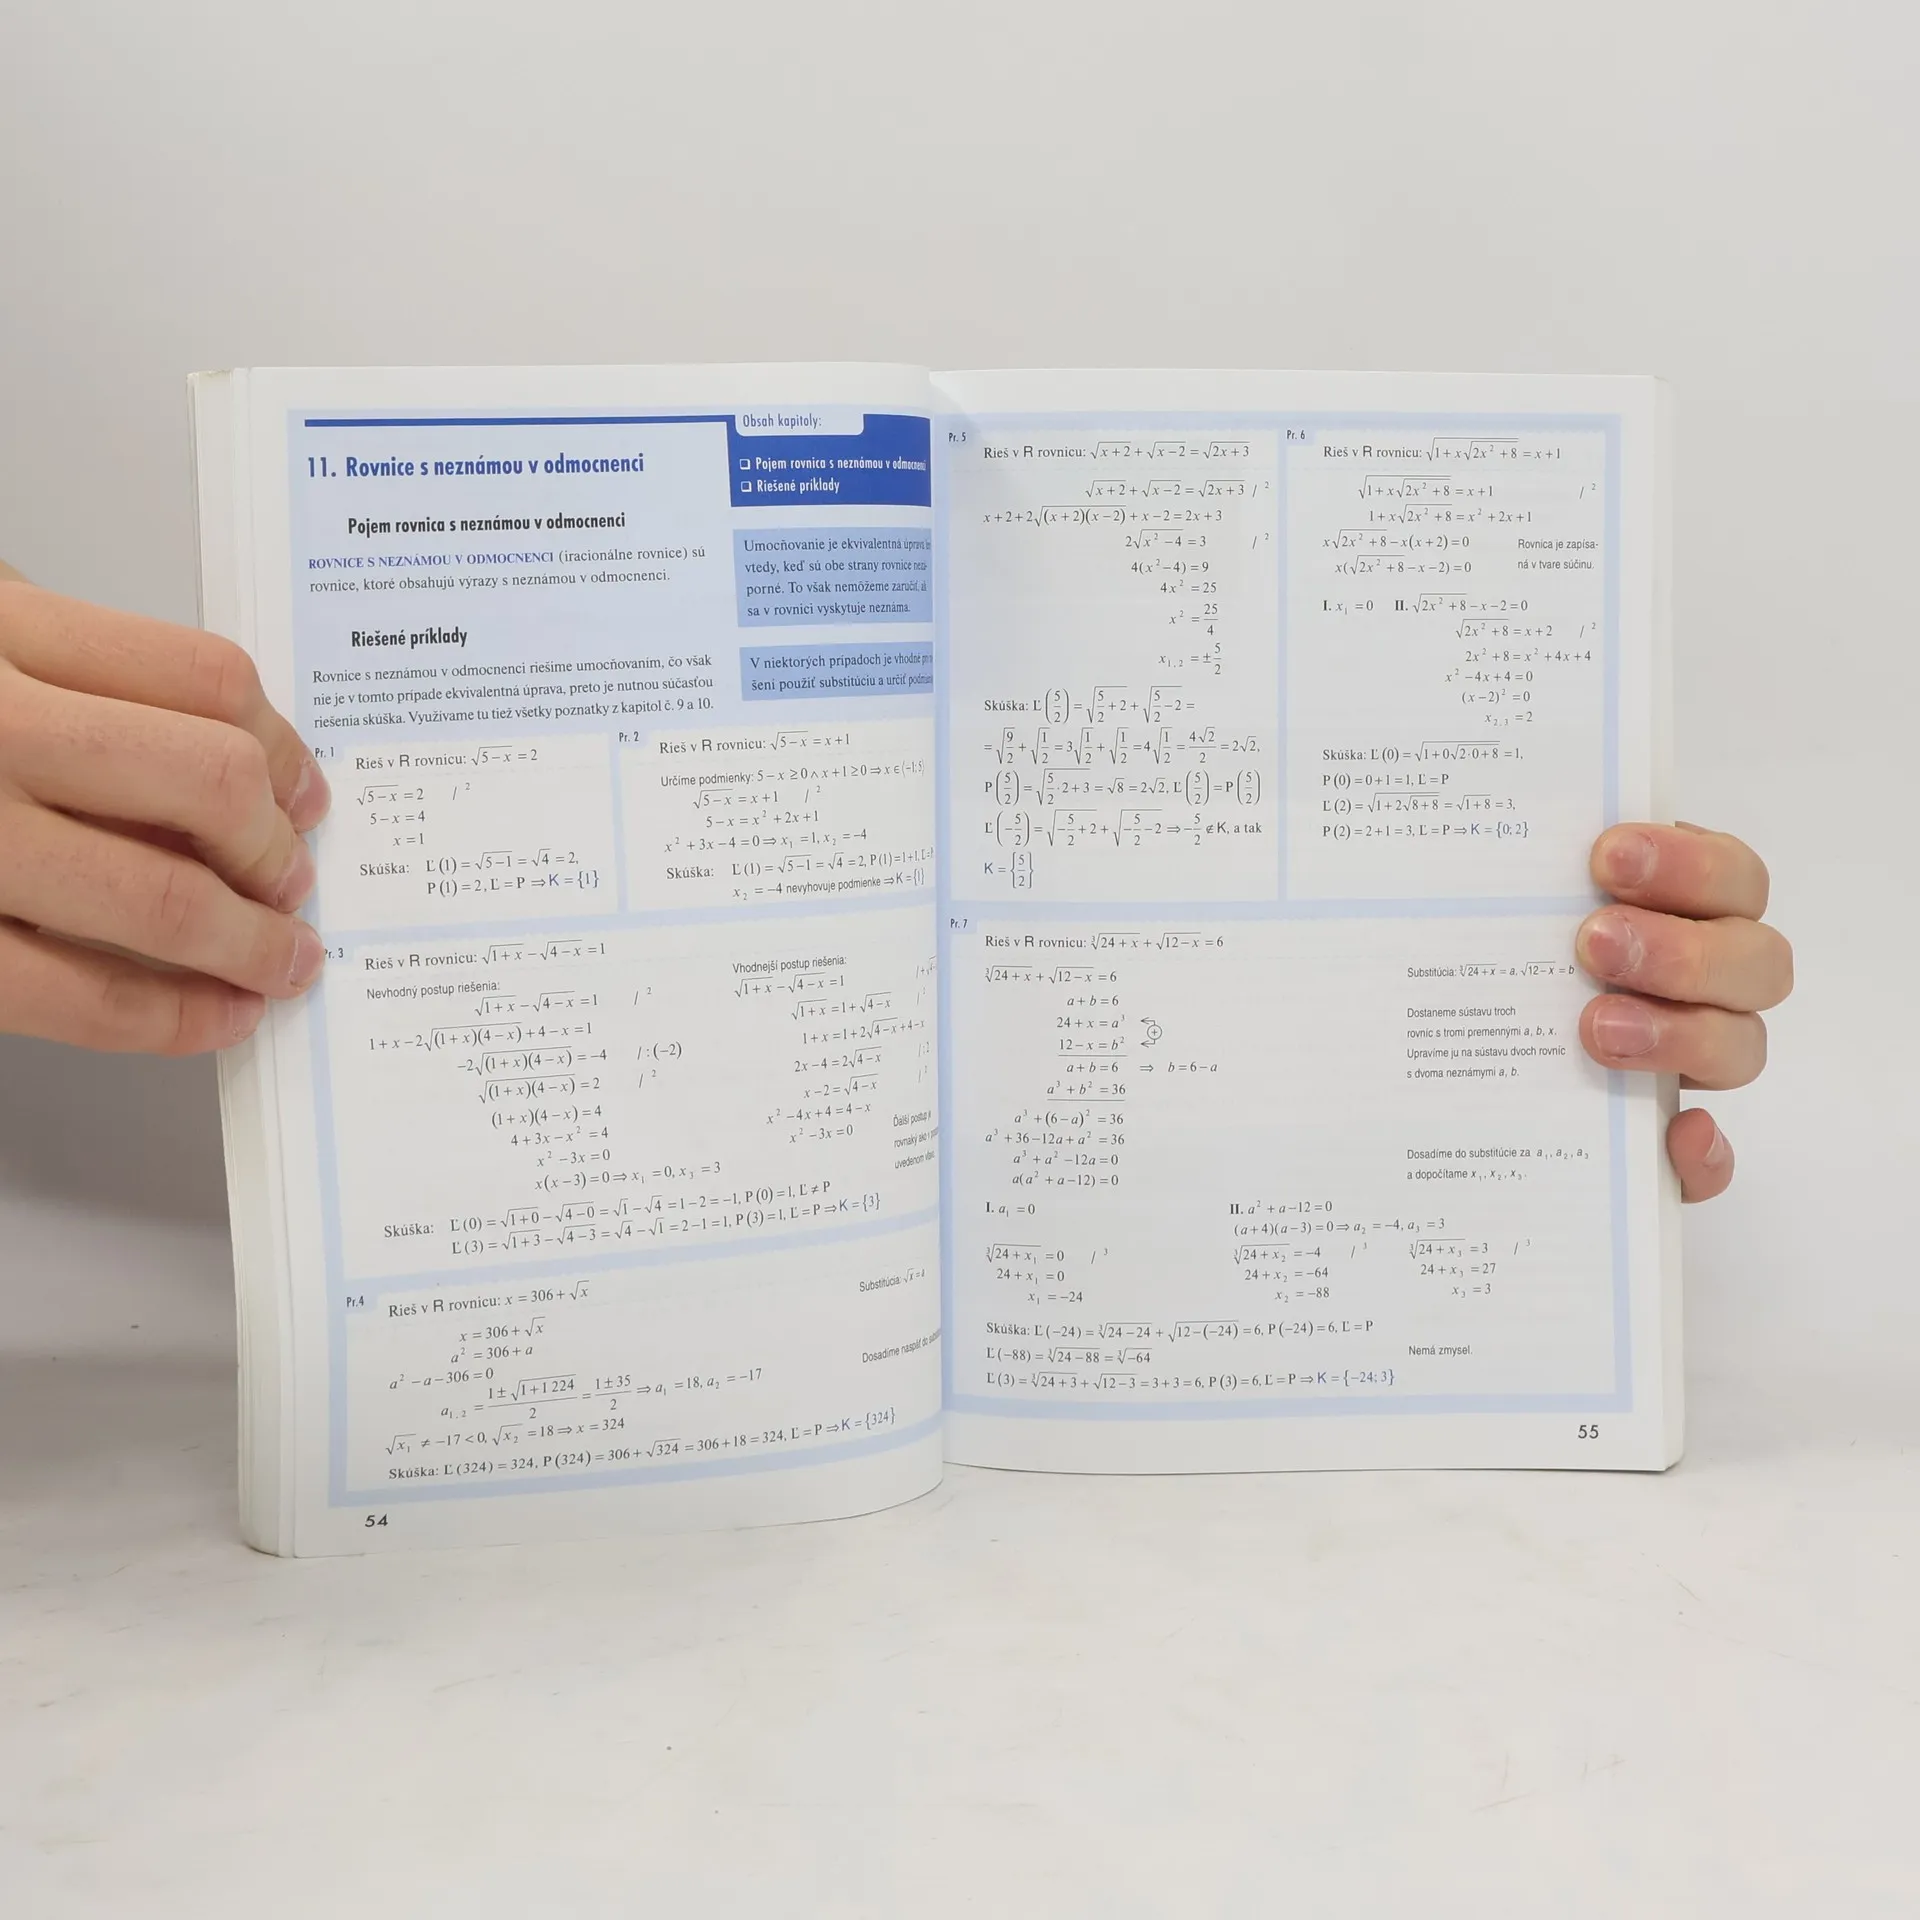 11. Rovnice s neznámou v odmocnenci
Obsah kapitoly:
❑ Pojem rovnica s neznámou v odmocnenci
❑ Riešené príklady
Pojem rovnica s neznámou v odmocnenci
ROVNICE S NEZNÁMOU V ODMOCNENCI (iracionálne rovnice) sú
rovnice, ktoré obsahujú výrazy s neznámou v odmocnenci.
Riešené príklady
Rovnice s neznámou v odmocnenci riešime umocňovaním, čo však
nie je v tomto prípade ekvivalentná úprava, preto je nutnou súčasťou
riešenia skúška. Využívame tu tiež všetky poznatky z kapitol č. 9 a 10.
Umocňovanie je ekvivalentná úprava
vtedy, keď sú obe strany rovnice
porné. To však nemôžeme zaručiť, ak
sa v rovnici vyskytuje neznáma.
V niektorých prípadoch je vhodné
šení použiť substitúciu a určiť
Pr. 1
Rieš v R rovnicu: √(5−x) = 2
√(5−x) = 2 /²
5−x = 4
x = 1
Skúška: Ľ(1) = √(5−1) = √4 = 2,
P(1) = 2, Ľ = P ⇒ K = {1}
Pr. 2
Rieš v R rovnicu: √(5−x) = x+1
Určíme podmienky: 5−x ≥ 0 ∧ x+1 ≥ 0 ⇒ x ∈ ⟨−1; 5⟩
√(5−x) = x+1 /²
5−x = x²+2x+1
x²+3x−4 = 0 ⇒ x₁ = 1, x₂ = −4
Skúška: Ľ(1) = √(5−1) = √4 = 2, P(1) = 1+1,
x₂ = −4 nevyhovuje podmienke ⇒ K = {1}
Pr. 3
Rieš v R rovnicu: √(1+x) − √(4−x) = 1
Nevhodný postup riešenia:
√(1+x) − √(4−x) = 1 /²
1+x−2√((1+x)(4−x))+4−x = 1
−2√((1+x)(4−x)) = −4 /:(−2)
√((1+x)(4−x)) = 2 /²
(1+x)(4−x) = 4
4+3x−x² = 4
x²−3x = 0
x(x−3) = 0 ⇒ x₁ = 0, x₃ = 3
Vhodnejší postup riešenia:
√(1+x) − √(4−x) = 1
√(1+x) = 1+√(4−x)
1+x = 1+2√(4−x)+4−x
2x−4 = 2√(4−x) /:2
x−2 = √(4−x)
x²−4x+4 = 4−x
x²−3x = 0
Ďalší postup je
rovnaký ako v
uvedenom
Skúška: Ľ(0) = √(1+0) − √(4−0) = √1 − √4 = 1−2 = −1, P(0) = 1, Ľ ≠ P
Ľ(3) = √(1+3) − √(4−3) = √4 − √1 = 2−1 = 1, P(3) = 1, Ľ = P ⇒ K = {3}
Pr.4
Rieš v R rovnicu: x = 306+√x
Substitúcia: √x = a
x = 306+√x
a² = 306+a
a²−a−306 = 0
a₁,₂ = (1±√(1+1 224))/2 = (1±35)/2 ⇒ a₁ = 18, a₂ = −17
Dosadíme naspäť do
√x₁ ≠ −17 < 0, √x₂ = 18 ⇒ x = 324
Skúška: Ľ(324) = 324, P(324) = 306+√324 = 306+18 = 324, Ľ = P ⇒ K = {324}
54
Pr. 5
Rieš v R rovnicu: √(x+2) + √(x−2) = √(2x+3)
√(x+2) + √(x−2) = √(2x+3) /²
x+2+2√((x+2)(x−2))+x−2 = 2x+3
2√(x²−4) = 3 /²
4(x²−4) = 9
4x² = 25
x² = 25/4
x₁,₂ = ±5/2
Skúška: Ľ(5/2) = √(5/2+2) + √(5/2−2) =
= √(9/2) + √(1/2) = 3√(1/2) + √(1/2) = 4√(1/2) = 4√2/2 = 2√2,
P(5/2) = √(5/2·2+3) = √8 = 2√2, Ľ(5/2) = P(5/2)
Ľ(−5/2) = √(−5/2+2) + √(−5/2−2) ⇒ −5/2 ∉ K, a tak
K = {5/2}
Pr. 6
Rieš v R rovnicu: √(1+x√(2x²+8)) = x+1
√(1+x√(2x²+8)) = x+1 /²
1+x√(2x²+8) = x²+2x+1
x√(2x²+8)−x(x+2) = 0
x(√(2x²+8)−x−2) = 0
Rovnica je zapísa-
ná v tvare súčinu.
I. x₁ = 0 II. √(2x²+8)−x−2 = 0
√(2x²+8) = x+2 /²
2x²+8 = x²+4x+4
x²−4x+4 = 0
(x−2)² = 0
x₂,₃ = 2
Skúška: Ľ(0) = √(1+0√(2·0+8)) = 1,
P(0) = 0+1 = 1, Ľ = P
Ľ(2) = √(1+2√(8+8)) = √(1+8) = 3,
P(2) = 2+1 = 3, Ľ = P ⇒ K = {0; 2}
Pr. 7
Rieš v R rovnicu: ∛(24+x) + √(12−x) = 6
∛(24+x) + √(12−x) = 6
Substitúcia: ∛(24+x) = a, √(12−x) = b
a+b = 6
24+x = a³
12−x = b²
a+b = 6 ⇒ b = 6−a
a³+b² = 36
Dostaneme sústavu troch
rovníc s tromi premennými a, b, x.
Upravíme ju na sústavu dvoch rovníc
s dvoma neznámymi a, b.
a³+(6−a)² = 36
a³+36−12a+a² = 36
a³+a²−12a = 0
a(a²+a−12) = 0
Dosadíme do substitúcie za a₁, a₂, a₃
a dopočítame x₁, x₂, x₃.
I. a₁ = 0 II. a²+a−12 = 0
(a+4)(a−3) = 0 ⇒ a₂ = −4, a₃ = 3
∛(24+x₁) = 0 /³ ∛(24+x₂) = −4 /³ ∛(24+x₃) = 3 /³
24+x₁ = 0 24+x₂ = −64 24+x₃ = 27
x₁ = −24 x₂ = −88 x₃ = 3
Skúška: Ľ(−24) = ∛(24−24) + √(12−(−24)) = 6, P(−24) = 6, Ľ = P
Ľ(−88) = ∛(24−88) = ∛(−64) Nemá zmysel.
Ľ(3) = ∛(24+3) + √(12−3) = 3+3 = 6, P(3) = 6, Ľ = P ⇒ K = {−24; 3}
55